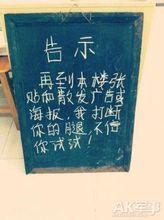 告示
再到本楼张
贴和散发广告或
海报，我打断
你的腿，不信
你试试！
AK军事